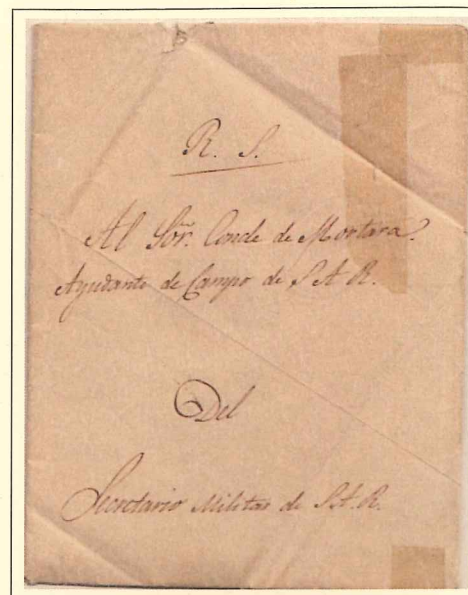 R. S.
Al Sör. Conde de Mortara.
Ayudante de Campo de S A R.
Del
Secretario Militar de S.A.R.